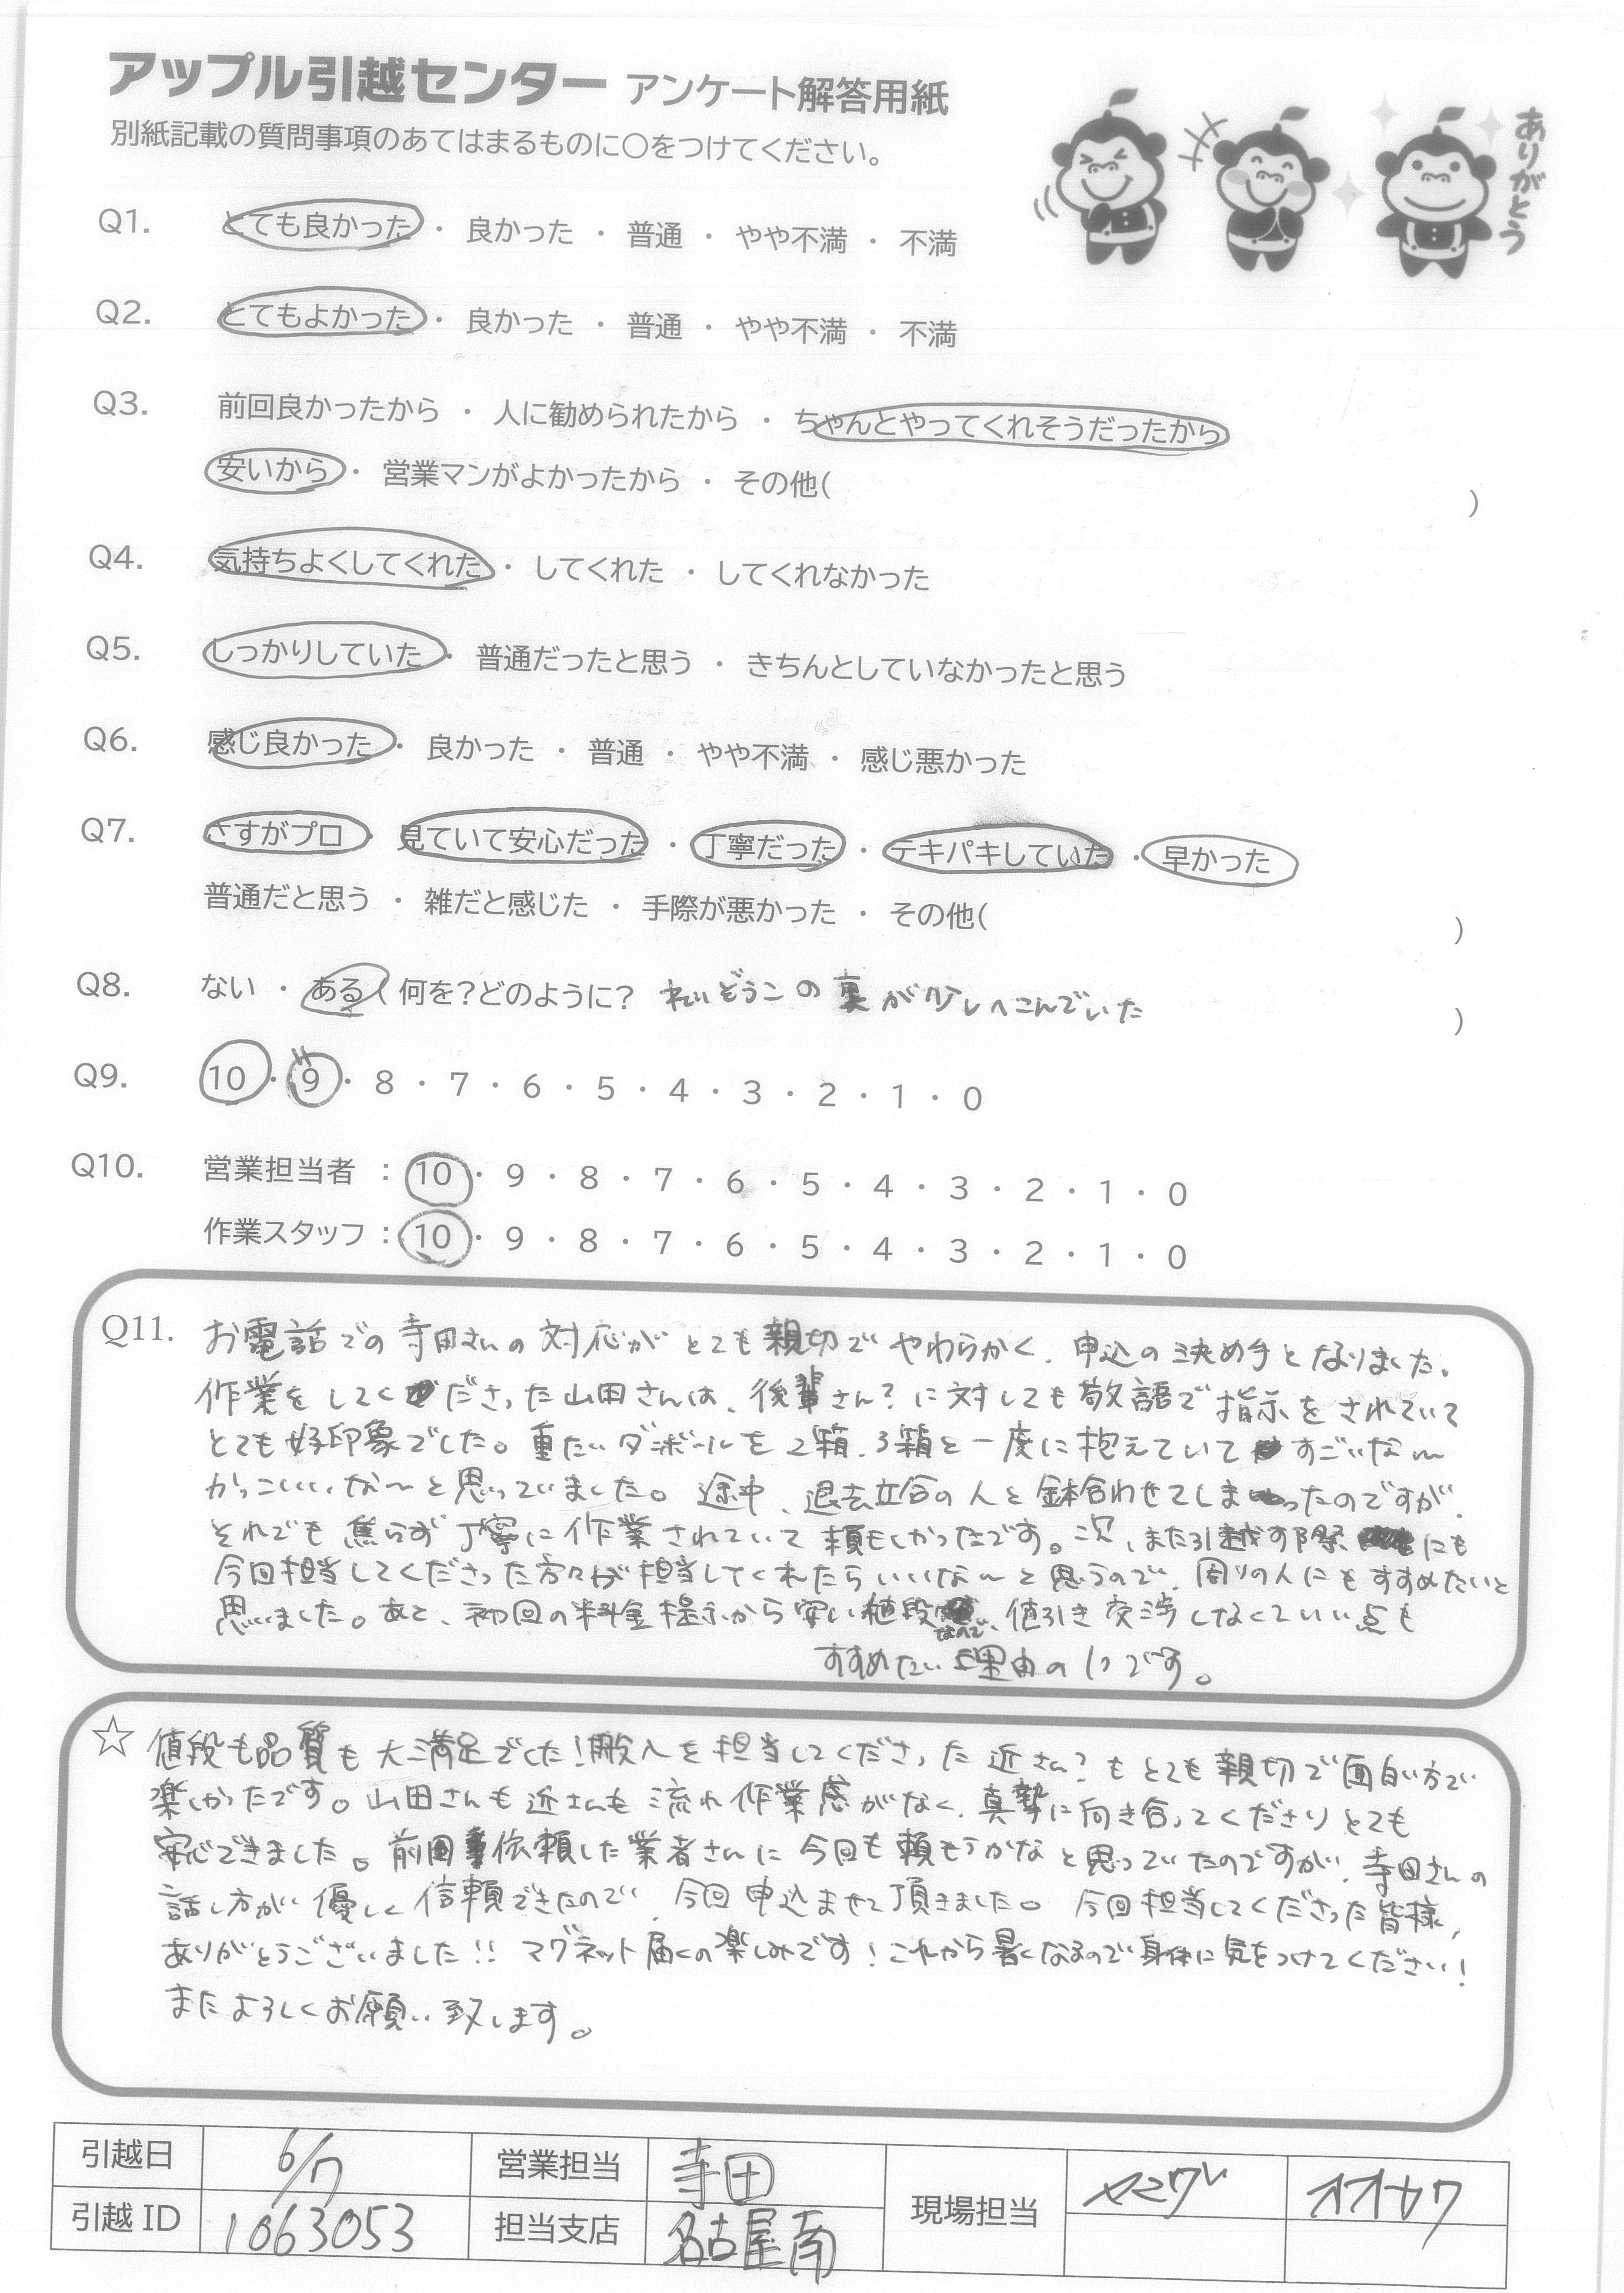 アップル引越センター アンケート解答用紙
別紙記載の質問事項のあてはまるものに○をつけてください。
ありがとう
Q1. とても良かった ・ 良かった ・ 普通 ・ やや不満 ・ 不満
Q2. とてもよかった ・ 良かった ・ 普通 ・ やや不満 ・ 不満
Q3. 前回良かったから ・ 人に勧められたから ・ ちゃんとやってくれそうだったから
安いから ・ 営業マンがよかったから ・ その他( )
Q4. 気持ちよくしてくれた ・ してくれた ・ してくれなかった
Q5. しっかりしていた ・ 普通だったと思う ・ きちんとしていなかったと思う
Q6. 感じ良かった ・ 良かった ・ 普通 ・ やや不満 ・ 感じ悪かった
Q7. さすがプロ ・ 見ていて安心だった ・ 丁寧だった ・ テキパキしていた ・ 早かった
普通だと思う ・ 雑だと感じた ・ 手際が悪かった ・ その他( )
Q8. ない ・ ある ( 何を?どのように? れいぞうこの裏が少しへこんでいた )
Q9. 10 ・ 9 ・ 8 ・ 7 ・ 6 ・ 5 ・ 4 ・ 3 ・ 2 ・ 1 ・ 0
Q10. 営業担当者 : 10 ・ 9 ・ 8 ・ 7 ・ 6 ・ 5 ・ 4 ・ 3 ・ 2 ・ 1 ・ 0
作業スタッフ : 10 ・ 9 ・ 8 ・ 7 ・ 6 ・ 5 ・ 4 ・ 3 ・ 2 ・ 1 ・ 0
Q11. お電話での寺田さんの対応がとても親切でやわらかく、申込の決め手となりました。
作業をしてくださった山田さんは、後輩さん?に対しても敬語で指示をされていて
とても好印象でした。重たいダンボールを2箱、3箱と一度に抱えていてすごいな〜
かっこいいな〜と思っていました。途中、退去立合の人と鉢合わせてしまったのですが、
それでも焦らず丁寧に作業されていて頼もしかったです。次、また引越す際にも
今回担当してくださった方々が担当してくれたらいいな〜と思うので、周りの人にもすすめたいと
思いました。あと、初回の料金提示から安い値段なので、値引き交渉しなくていい点も
すすめたい理由の1つです。
☆ 値段も品質も大満足でした!搬入を担当してくださった近さん?もとても親切で面白い方で
楽しかったです。山田さんも近さんも流れ作業感がなく、真摯に向き合ってくださりとても
安心できました。前回依頼した業者さんに今回も頼もうかなと思っていたのですが、寺田さんの
話し方が優しく信頼できたので、今回申込ませて頂きました。今回担当してくださった皆様、
ありがとうございました!! マグネット届くの楽しみです!これから暑くなるので身体に気をつけてください!
またよろしくお願い致します。
引越日 6/7 営業担当 寺田 現場担当 オオカワ
引越ID 1063053 担当支店 名古屋南